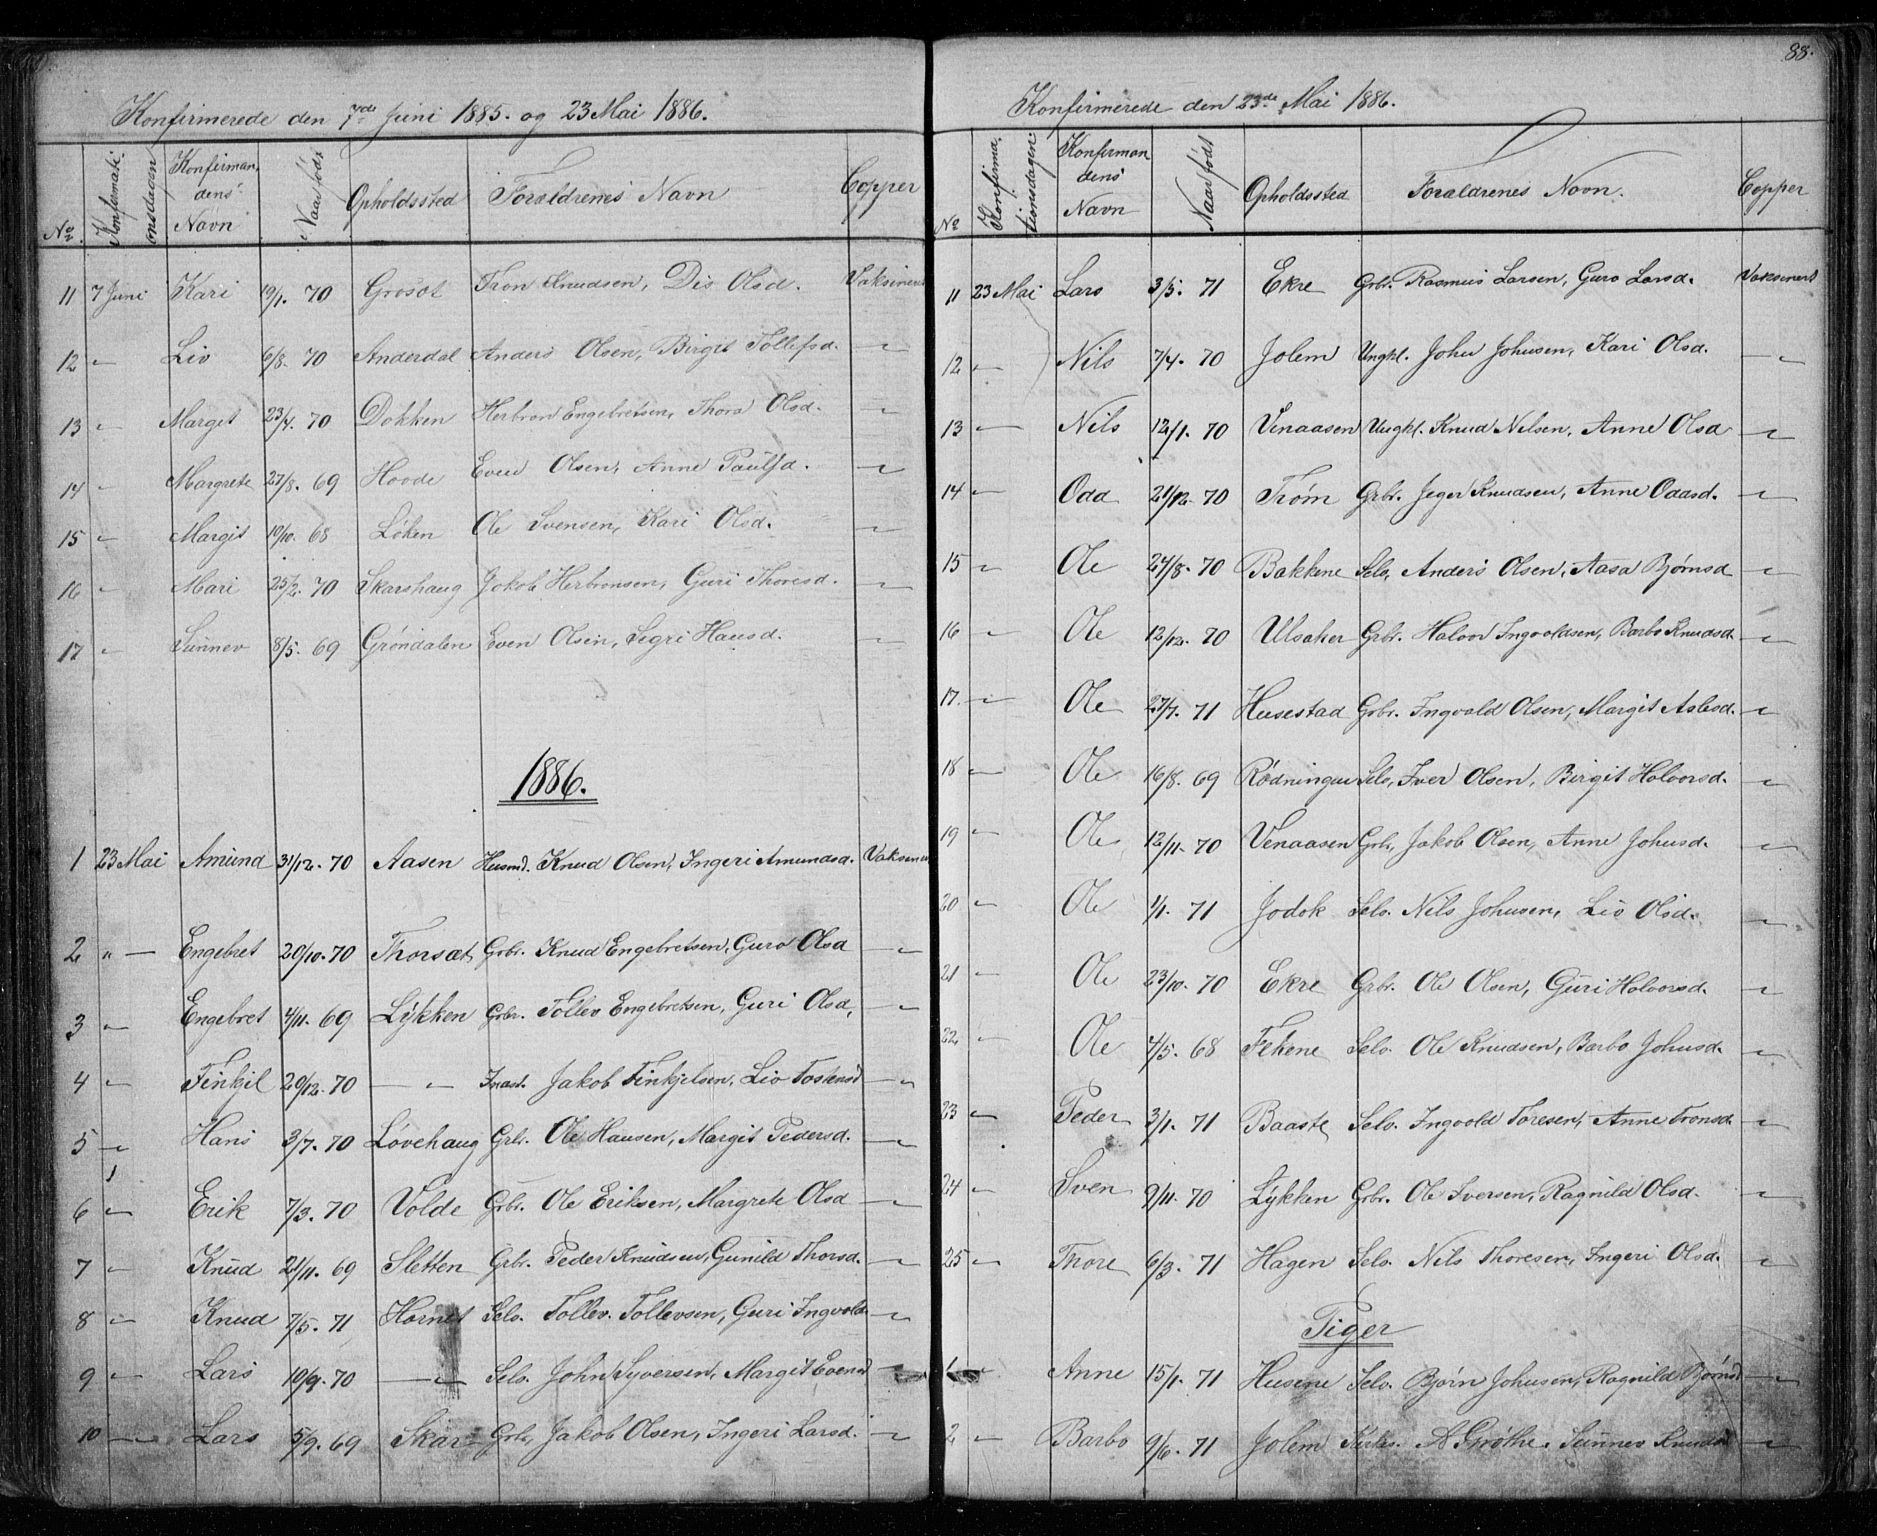 Konfirmerede den 7de Juni 1885. og 23 Mai 1886.
No. Konfirmationsdagen Konfirmandens Navn Naar født Opholdssted Forældrenes Navn Copper
11 7 Juni Kari 19/1. 70 Grøsøt Tron Knudsen, Dis Olsd. Vaksineret
12 " Liv 6/8. 70 Anderdal Anders Olsen, Birgit Tollefsd. "
13 " Marget 23/4. 70 Dokken Herbron Engebretsen, Thora Olsd. "
14 " Margrete 27/8. 69 Hovde Even Olsen, Anne Paulsd. "
15 " Margit 10/10. 68 Løken Ole Svensen, Kari Olsd. "
16 " Mari 25/2. 70 Skarshaug Jakob Herbronsen, Guri Thoresd. "
17 " Sünnev 8/5. 69 Grøndalen Even Olsen, Segri Hansd. "
1886.
1 23 Mai Amund 31/12. 70 Aasen Husmd. Knud Olsen, Ingeri Amundsd. Vaksineret
2 " Engebret 20/10. 70 Thorsæt Grbr. Knud Engebretsen, Guro Olsd "
3 " Engebret 4/11. 69 Lykken Grbr. Tollev Engebretsen, Guri Olsd, "
4 " Finkil 20/12. 70 " Inast. Jakob Finkjelsen, Liv Tostensd "
5 " Hans 3/7. 70 Løvehaug Grbr. Ole Hansen, Margit Pedersd. "
6 " Erik 7/3. 70 Volde Grbr. Ole Eriksen, Margrete Olsd "
7 " Knud 21/11. 69 Sletten Grbr. Peder Knudsen, Gunild Thorsd. "
8 " Knud 7/5. 71 Hornet Selv. Tollev Tollevsen, Guri Ingvolds "
9 " Lars 10/9. 70 " Selv. John Syversen, Margit Evensd "
10 " Lars 5/9. 69 Skar Grbr, Jakob Olsen, Ingeri Larsd. "
88.
Konfirmerede den 23de Mai 1886.
No Konfirmationsdagen Konfirmandens Navn Naar født Opholdssted Forældrenes Navn. Copper
11 23 Mai Lars 3/5. 71 Ekre Grbr. Rasmus Larsen, Guro Larsd. Vaksinert
12 " Nils 7/4. 70 Jolem Ungkl. John Johnsen, Kari Olsd. "
13 " Nils 12/1. 70 Venaasen Ungkl. Knud Nilsen, Anne Olsd "
14 " Odd 21/12. 70 Trøm Grbr. Jeger Knudsen, Anne Oddsd. "
15 " Ole 24/8. 70 Bakkene Selv, Anders Olsen, Aasa Bjørnsd "
16 " Ole 12/12. 70 Ulsaker Grbr. Halvor Ingvoldsen, Barbo Knudsd. "
17. " Ole 27/7. 71 Husestad Grbr. Ingvald Olsen, Margit Aslesd. "
18 " Ole 16/8. 69 Rødningen Selv, Iver Olsen, Birgit Holvorsd. "
19 " Ole 12/11. 70 Venaasen Grbr, Jakob Olsen, Anne Johnsd. "
20 " Ole 1/1. 71 Jodok Selv. Nils Johnsen, Liv Olsd. "
21 " Ole 23/10. 70 Ekre Grbr. Ole Olsen, Guri Holvorsd. "
22 " Ole 4/5. 68 Fekene Selv. Ole Knudsen, Barbo Johnsd. "
23 " Peder 3/1. 71 Baaste Selv. Ingvold Toresen, Anne Tronsd. "
24 " Sven 9/11. 70 Lykken Grbr. Ole Iversen, Ragnild Olsd. "
25 " Thore 6/3. 71 Hagen Selv. Nils Thoresen, Ingeri Olsd. "
Piger
1 " Anne 15/1. 71 Husene Selv. Bjørn Johnsen, Ragnild Bjørnsd "
2 " Barbo 9/6. 71 Jolem Kirks. A Grøthe. Sünnev Knudsd "